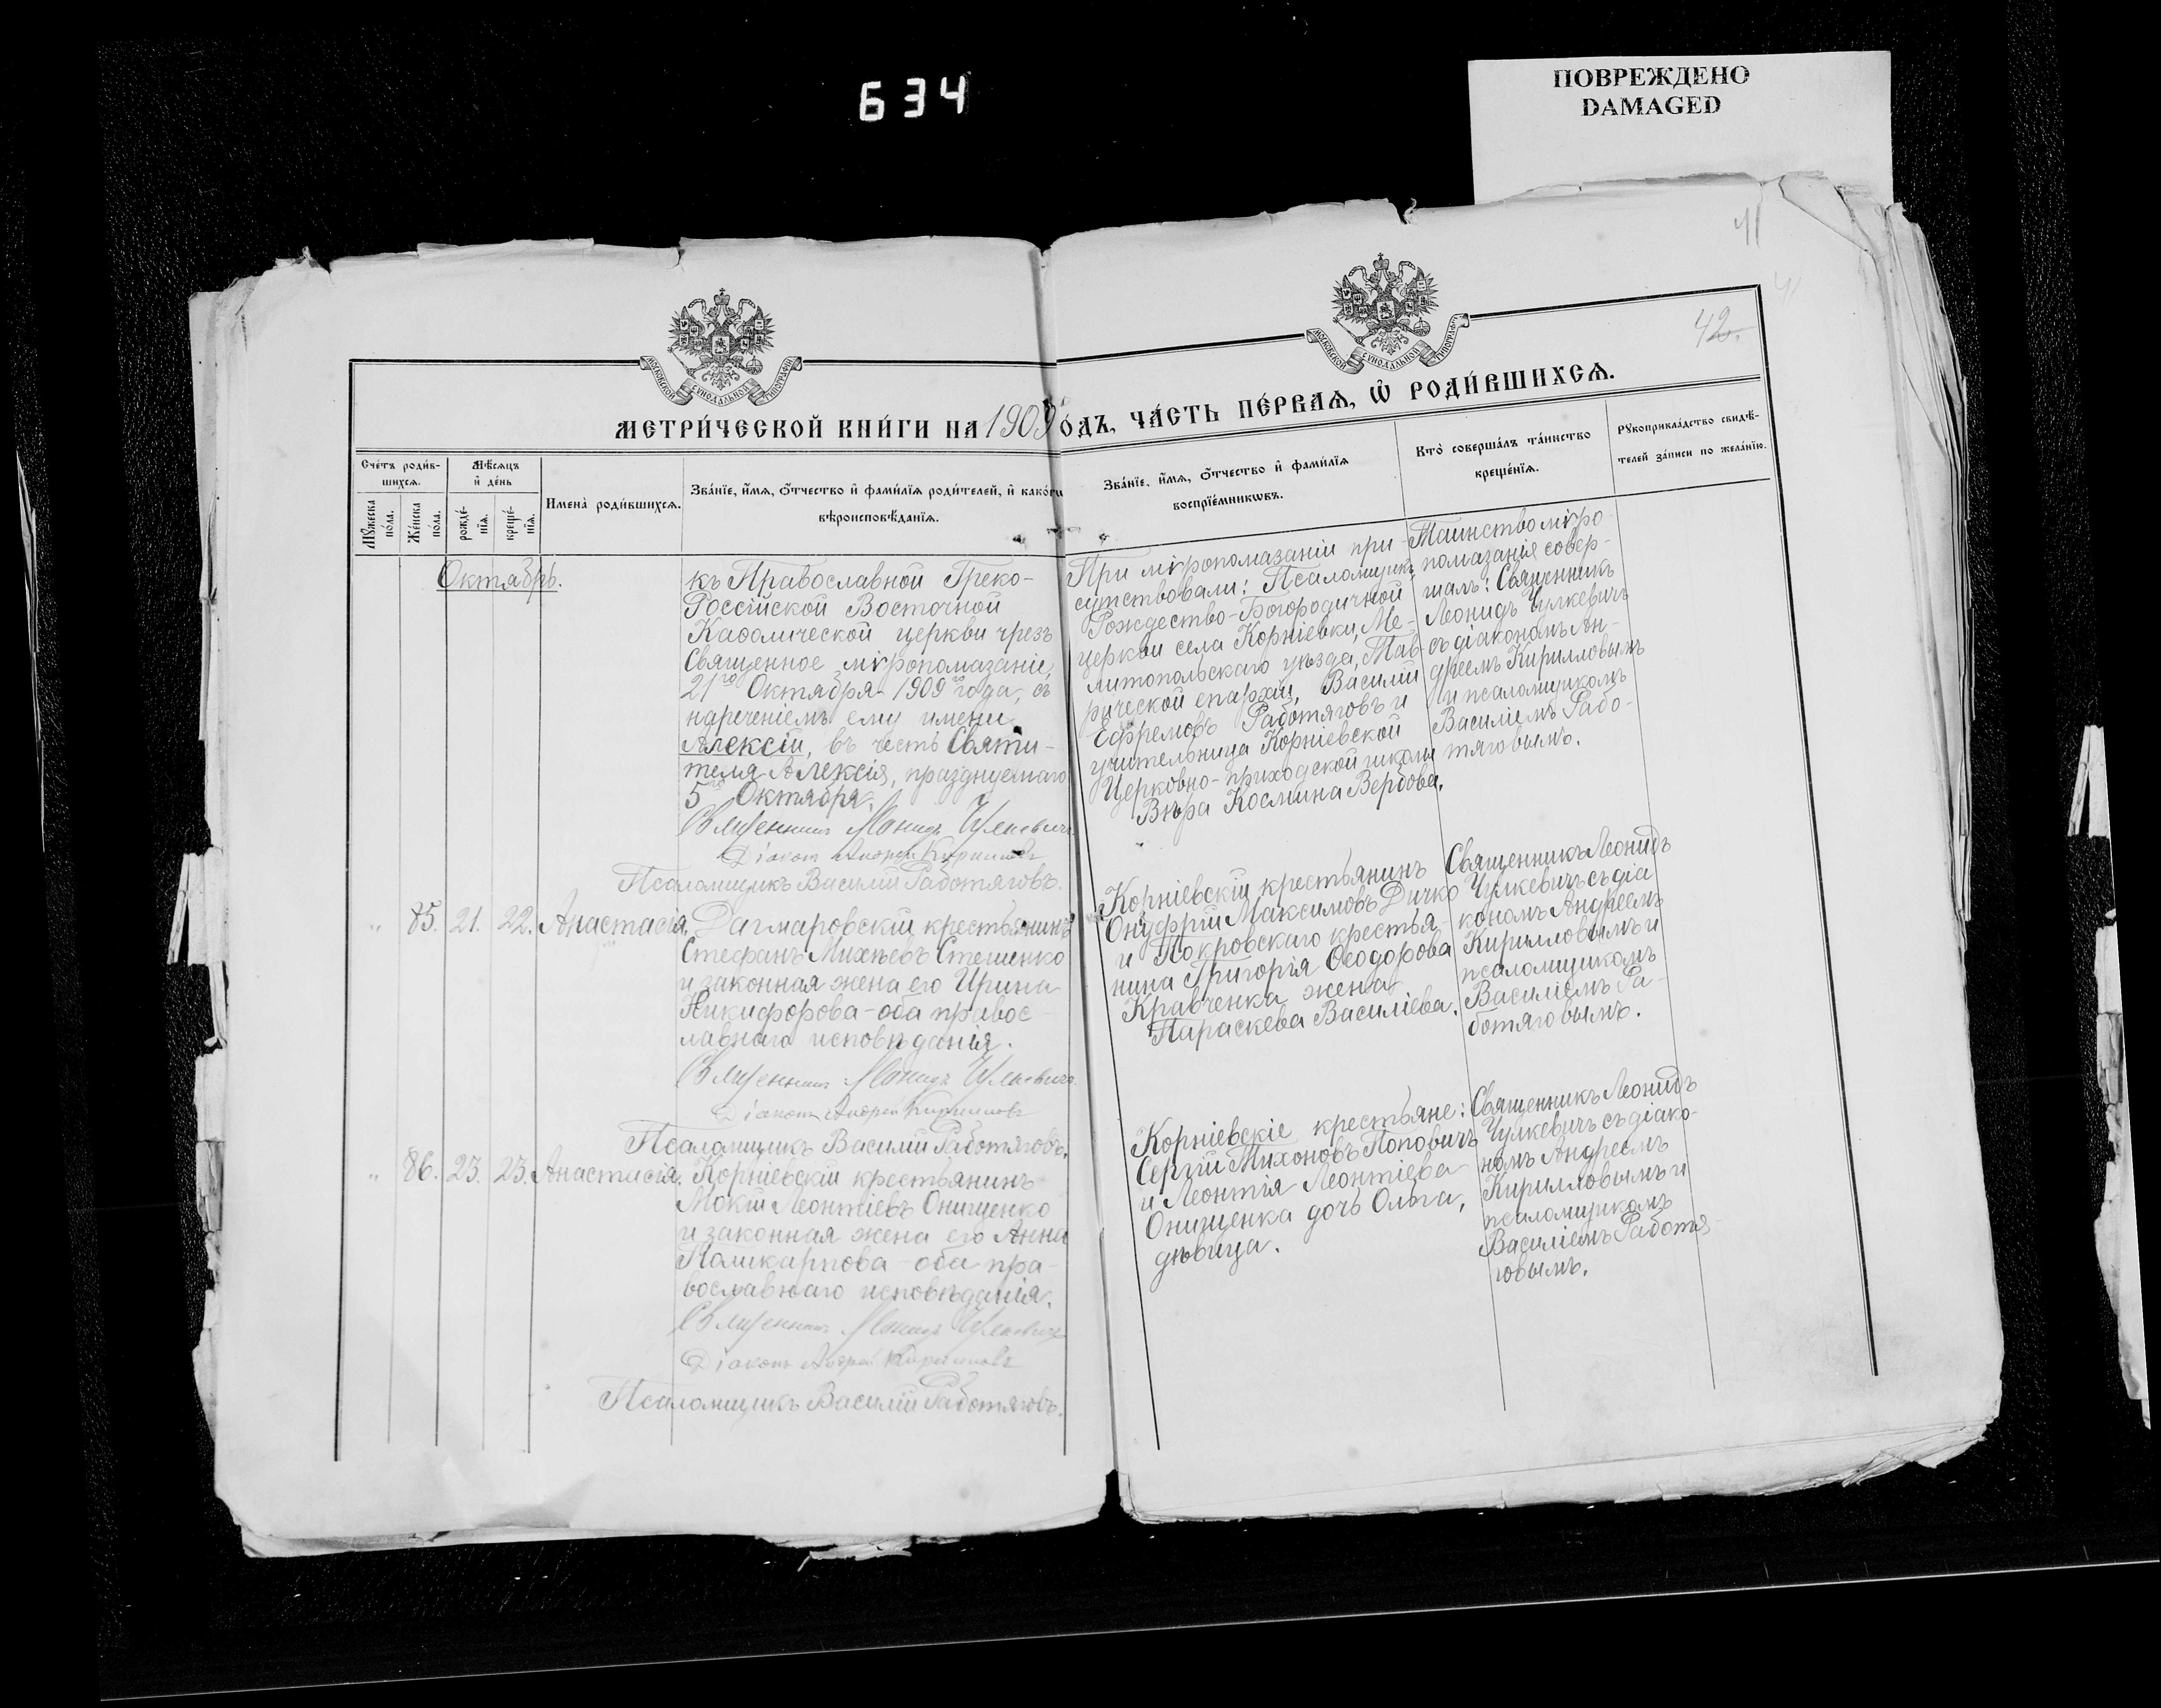 634
ПОВРЕЖДЕНО
DAMAGED
41
41
42.
МОСКОВСКОЙ СѴНОДАЛЬНОЙ ТИПОГРАФІИ
МОСКОВСКОЙ СѴНОДАЛЬНОЙ ТИПОГРАФІИ
МЕТРИ́ЧЕСКОЙ КНИ́ГИ НА 1909 ГОДЪ, ЧА́СТЬ ПЕ́РВАѦ, Ѡ҆ РОДИ́ВШИХСѦ.
Сче́тъ роди́в-
шихсѧ.
Мꙋ́жеска по́ла.
Же́нска по́ла.
Мѣ́сѧцъ
и҆ де́нь
рожде́-
нїѧ.
креще́-
нїѧ.
И҆мена̀ роди́вшихсѧ.
Зва́нїе, и҆́мѧ, ѻ҆́тчество и҆ фами́лїѧ роди́телей, и҆ како́гѡ
вѣроисповѣ́данїѧ.
Зва́нїе, и҆́мѧ, ѻ҆́тчество и҆ фами́лїѧ
воспрїе́мникѡвъ.
Кто̀ соверша́лъ та́инство
креще́нїѧ.
Рꙋкоприкла́дство свидѣ́-
телей за́писи по жела́нїю.
Октябрь.
къ Православной Греко-
Россійской Восточной
Каѳолической церкви чрезъ
Священное мѵропомазаніе,
21го Октября 1909го года, съ
нареченіемъ ему имени
Алексій, въ честь Святи-
теля Алексія, празднуемаго
5го Октября.
Священникъ Леонидъ Чулкевичъ
Діаконъ Андрей Кирилловъ
Псаломщикъ Василій Работяговъ.
При мѵропомазаніи при-
сутствовали: Псаломщикъ
Рождество-Богородичной
церкви села Корніевки, Ме-
литопольскаго уѣзда, Тав-
рической епархіи, Василій
Ефремовъ Работяговъ и
учительница Корніевской
Церковно-приходской школы
Вѣра Космина Вербова.
Таинство мѵро-
помазанія совер-
шалъ: Священникъ
Леонидъ Чулкевичъ
съ діакономъ Ан-
дреемъ Кирилловымъ
и псаломщикомъ
Василіемъ Рабо-
тяговымъ.
" 85. 21. 22. Анастасія.
Дагмаровскій крестьянинъ
Стефанъ Михѣевъ Стешенко
и законная жена его Ирина
Никифорова - оба правос-
лавнаго исповѣданія.
Священникъ Леонидъ Чулкевичъ
Діаконъ Андрей Кирилловъ
Псаломщикъ Василій Работяговъ.
Корніевскій крестьянинъ
Онуфрій Максимовъ Дичко
и Покровскаго крестья-
нина Григорія Ѳеодорова
Кравченка жена
Параскева Василіева.
Священникъ Леонидъ
Чулкевичъ съ діа
кономъ Андреемъ
Кирилловымъ и
псаломщикомъ
Василіемъ Ра-
ботяговымъ.
" 86. 23. 23. Анастасія.
Корніевскій крестьянинъ
Мокій Леонтіевъ Онищенко
и законная жена его Анна
Поликарпова - оба пра-
вославнаго исповѣданія.
Священникъ Леонидъ Чулкевичъ
Діаконъ Андрей Кирилловъ
Псаломщикъ Василій Работяговъ.
Корніевскіе крестьяне:
Сергій Тихоновъ Поповичъ
и Леонтія Леонтіева
Онищенка дочь Ольга,
дѣвица.
Священникъ Леонидъ
Чулкевичъ съ діако-
номъ Андреемъ
Кирилловымъ и
псаломщикомъ
Василіемъ Работя-
говымъ.